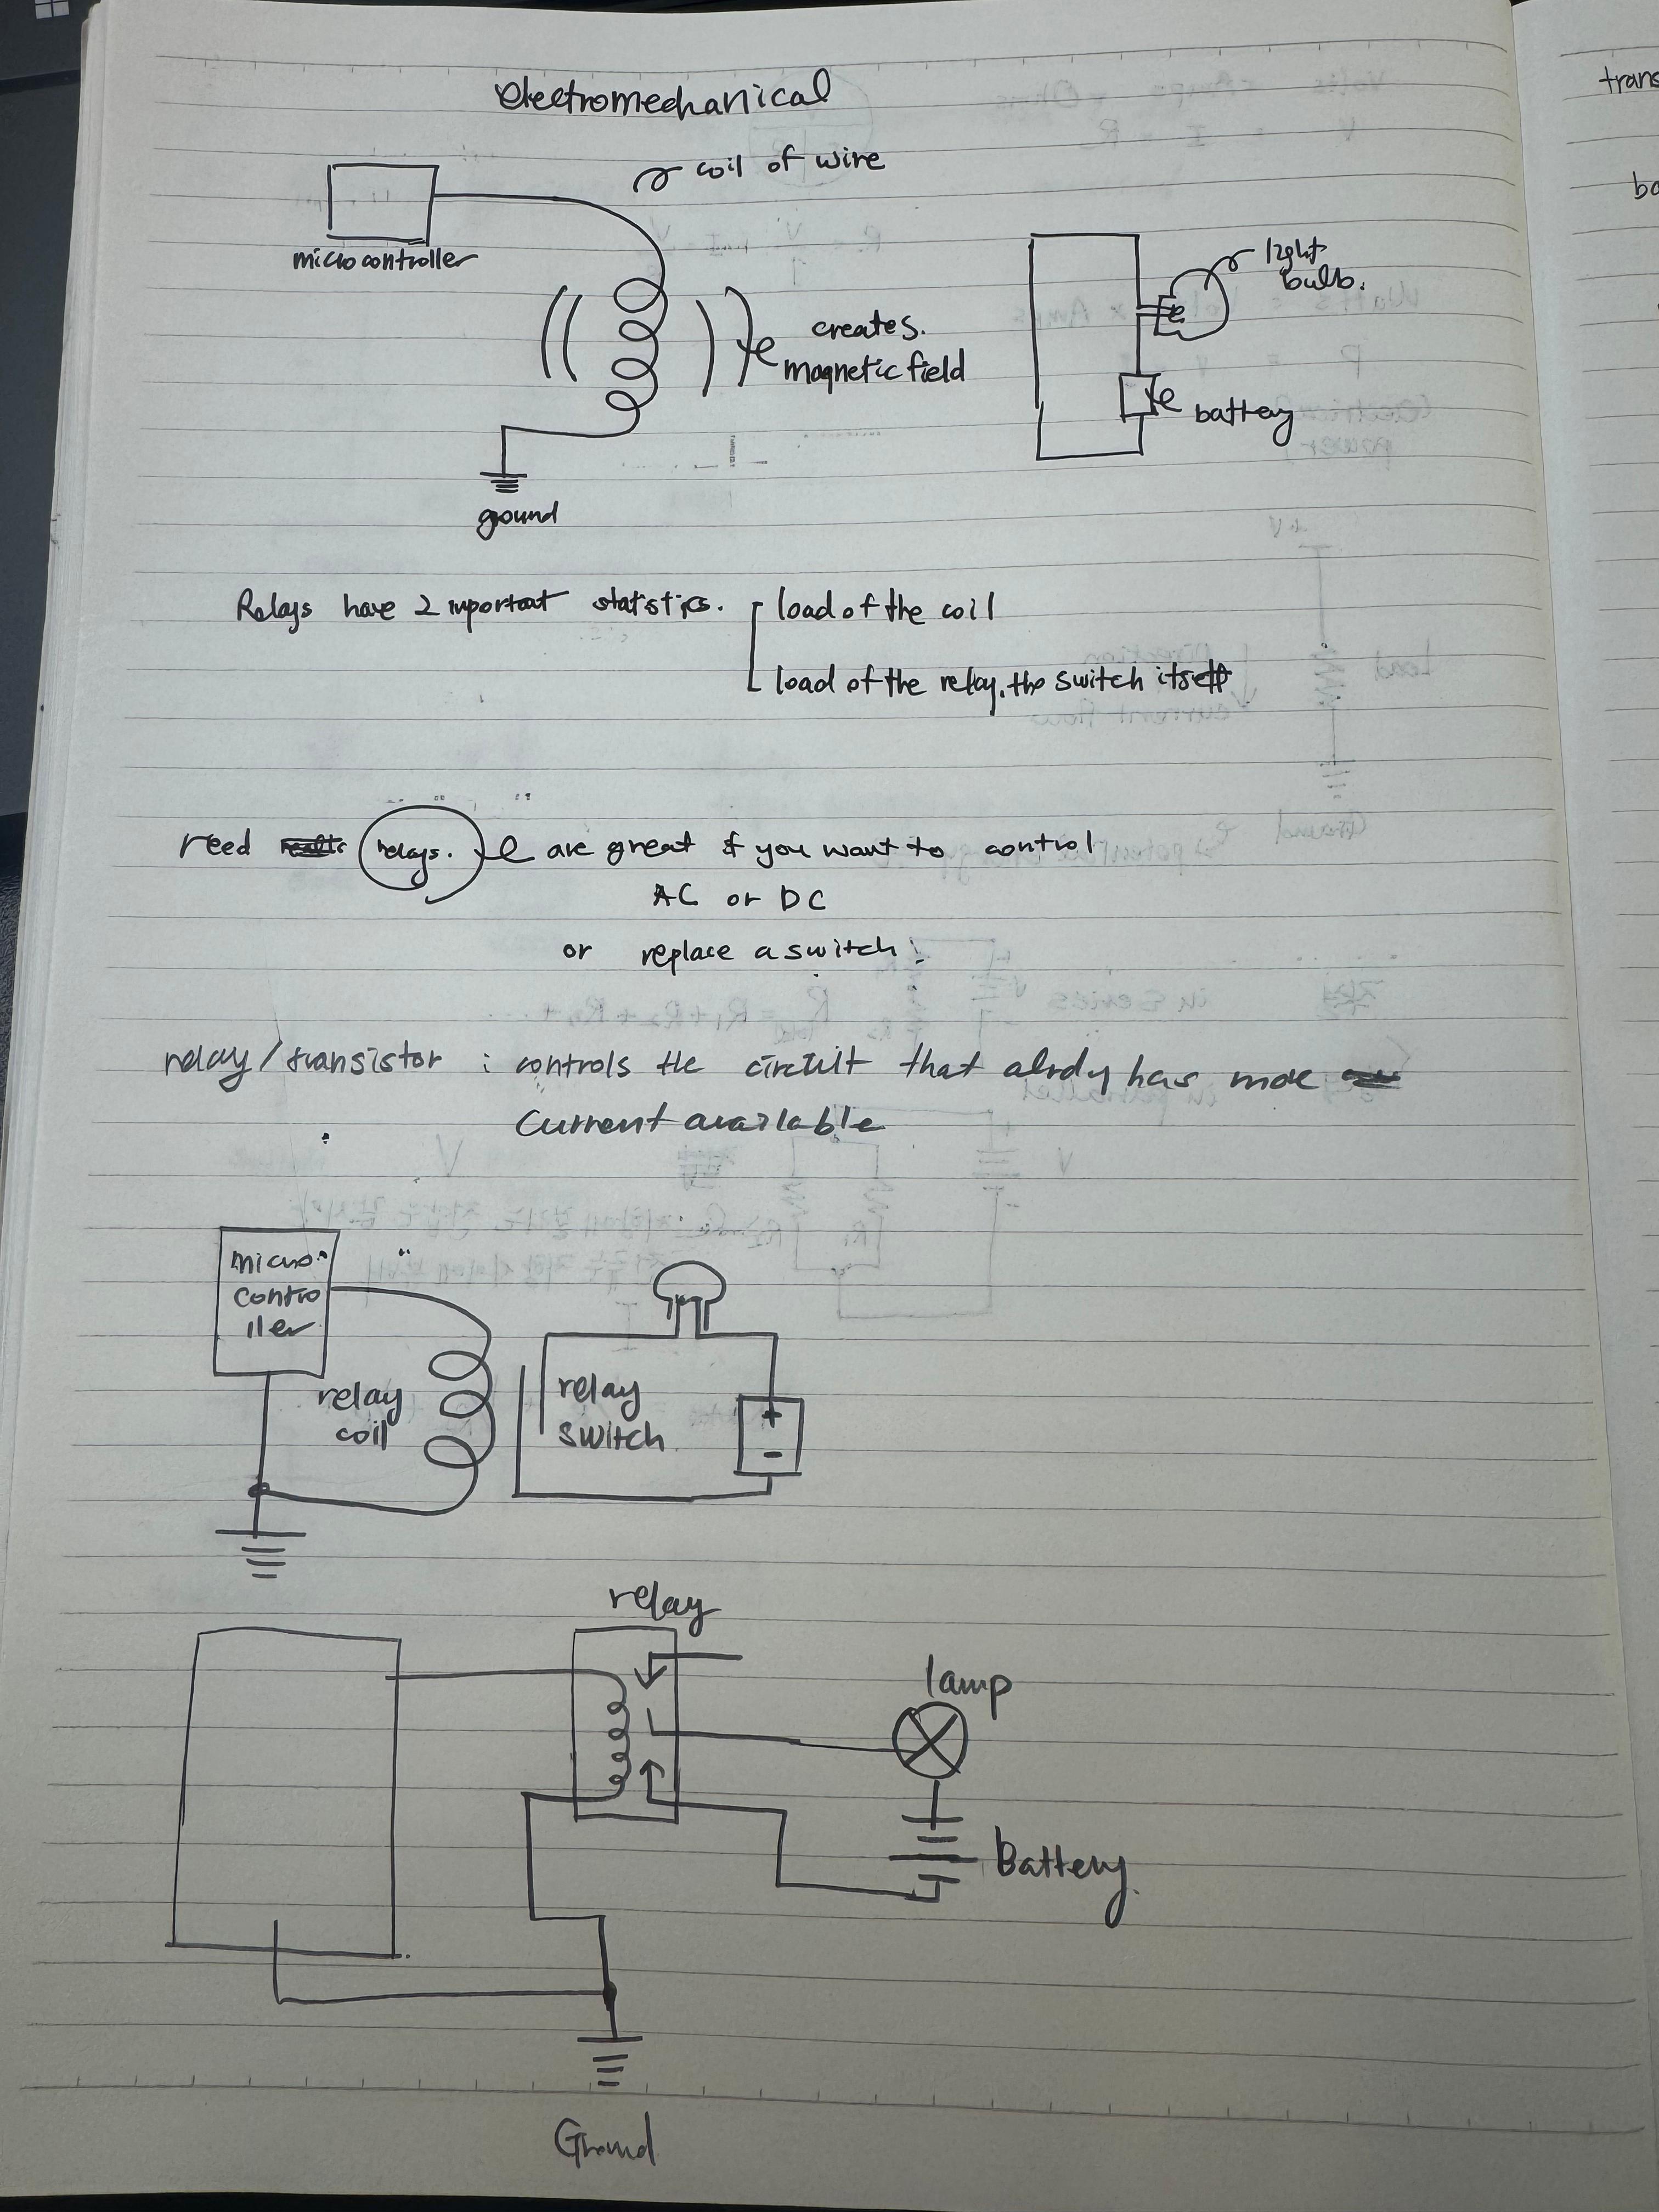 electromechanical
coil of wire
microcontroller
light
bulb.
creates.
magnetic field
battery
ground
Relays have 2 important statistics.
load of the coil
load of the relay, the switch itself
reed relays. are great if you want to control
AC or DC
or replace a switch!
relay/transistor : controls the circuit that alrdy has more
current available
micro
contro
ller
relay
coil
relay
switch
+
-
relay
lamp
Battery
Ground
trans